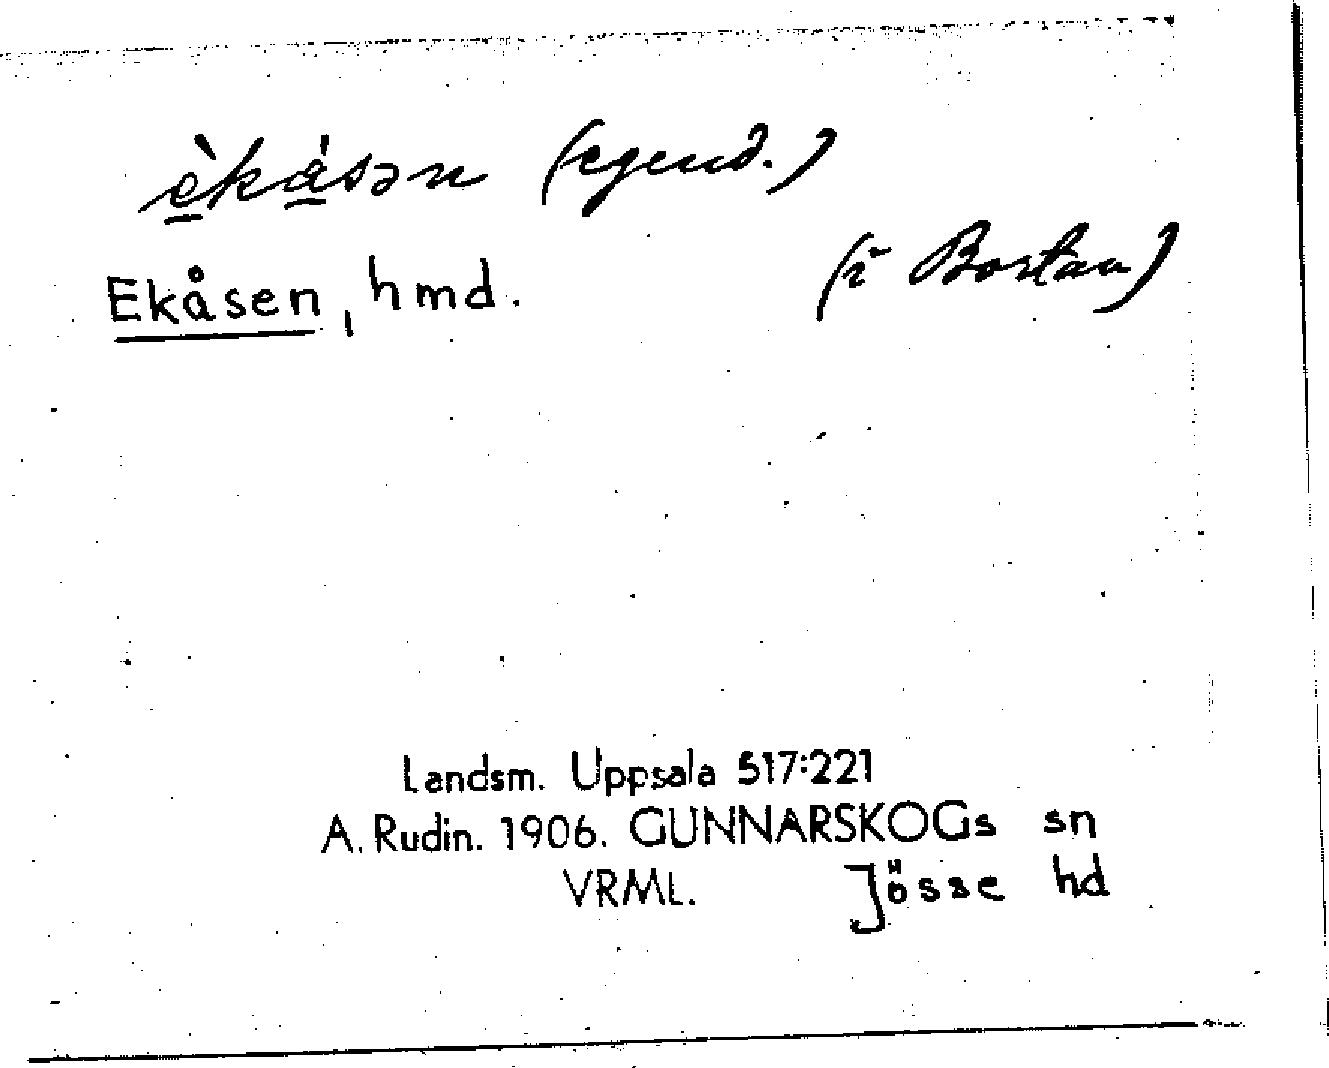 èkåsən (egend.)
(i Bortan)
Ekåsen, hmd.
Landsm. Uppsala 517:221
A. Rudin. 1906. GUNNARSKOGs sn
VRML. Jösse hd